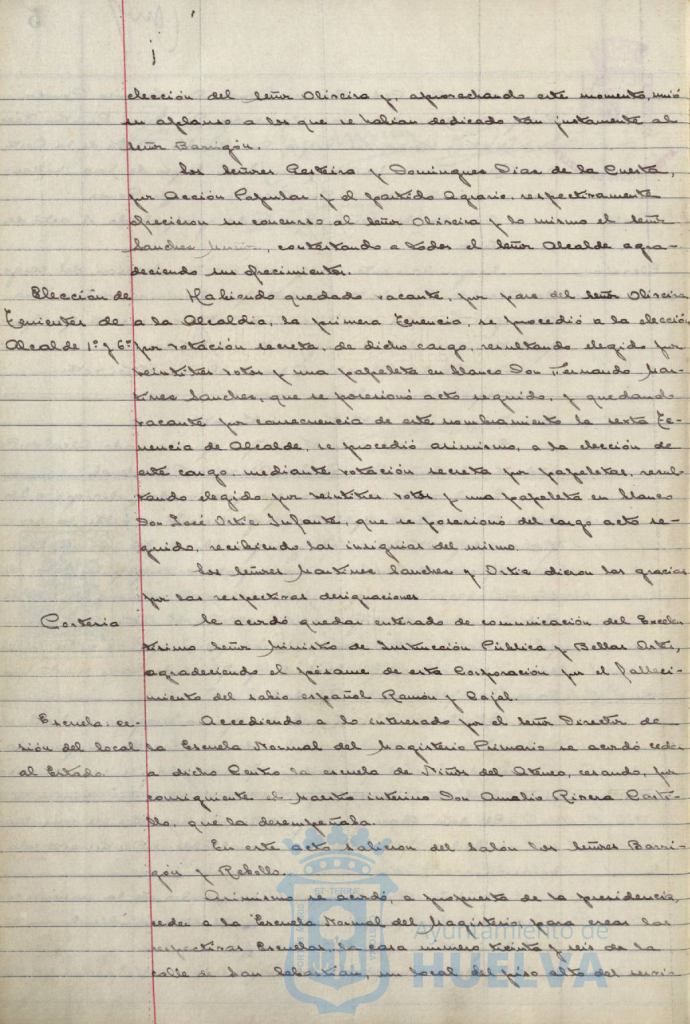 elección del Señor Oliveira y, aprovechando este momento, unió
su aplauso a los que se habían dedicado tan justamente al
Señor Barrigón.
Los Señores Pesteira y Domínguez Díaz de la Cuesta,
por Acción Popular y el partido Agrario, respectivamente
ofrecieron su concurso al Señor Oliveira y lo mismo el Señor
Sánchez, contestando a todos el Señor Alcalde agra-
deciendo sus ofrecimientos.
Elección de
Tenientes de
Alcalde 1º y 6º
Habiendo quedado vacante, por pase del Señor Oliveira
a la Alcaldía, la primera Tenencia, se procedió a la elección
por votación secreta, de dicho cargo, resultando elegido por
veintitrés votos y una papeleta en blanco Don Fernando Mar-
tínez Sánchez, que se posesionó acto seguido, y quedando
vacante por consecuencia de este nombramiento la sexta Te-
nencia de Alcalde, se procedió asimismo, a la elección de
este cargo, mediante votación secreta por papeletas, resul-
tando elegido por veintitrés votos y una papeleta en blanco
Don José Ortiz Infante, que se posesionó del cargo acto se-
guido, recibiendo las insignias del mismo.
Los Señores Martínez Sánchez y Ortiz dieron las gracias
por las respectivas designaciones
Cortesía
Se acordó quedar enterado de comunicación del Excelen-
tísimo Señor Ministro de Instrucción Pública y Bellas Artes,
agradeciendo el pésame de esta Corporación por el falleci-
miento del sabio español Ramón y Cajal.
Escuela: ce-
sión del local
al Estado
Accediendo a lo interesado por el Señor Director de
la Escuela Normal del Magisterio Primario se acordó ceder
a dicho Centro la escuela de Niños del Ateneo, cesando, por
consiguiente el Maestro interino Don Amalio Rivera Casti-
llo, que la desempeñaba.
En este acto salieron del salón los Señores Barri-
gón y Rebollo.
Asimismo se acordó, a propuesta de la presidencia,
ceder a la Escuela Normal del Magisterio para crear las
respectivas Escuelas, la casa número treinta y seis de la
calle de San Sebastián, un local del piso alto del
Ayuntamiento de
HUELVA